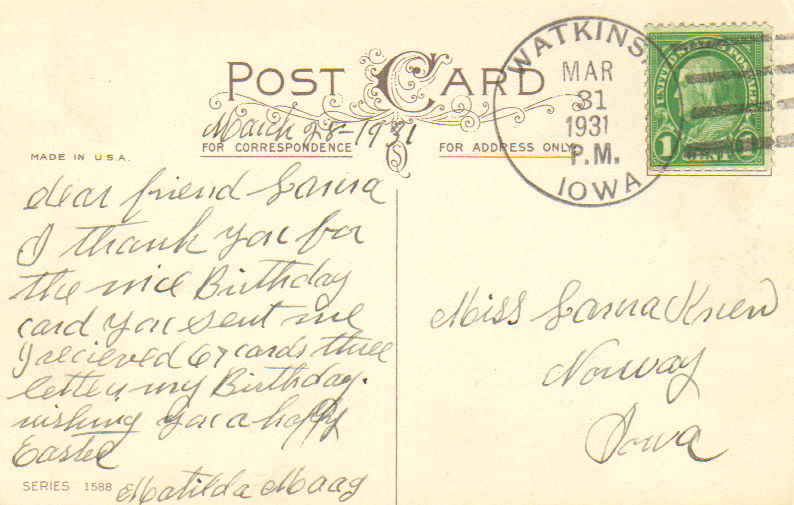 POST CARD
March 28-1931
FOR CORRESPONDENCE
FOR ADDRESS ONLY
MADE IN U.S.A.
dear friend Lorna
I thank you for
the nice Birthday
card you sent me
I recieved 67 cards three
letters my Birthday.
wishing you a happy
Easter
Matilda Maag
SERIES 1588
WATKINS
MAR
31
1931
P.M.
IOWA
UNITED STATES POSTAGE
1 CENT 1
Miss Lorna
Norway
Iowa